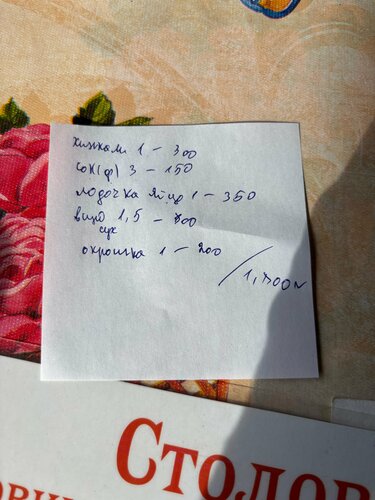 хинкали 1 – 300
сок(ф) 3 – 150
лодочка яйцо 1 – 350
вино 1,5 –
сух
окрошка 1 – 200
Столов